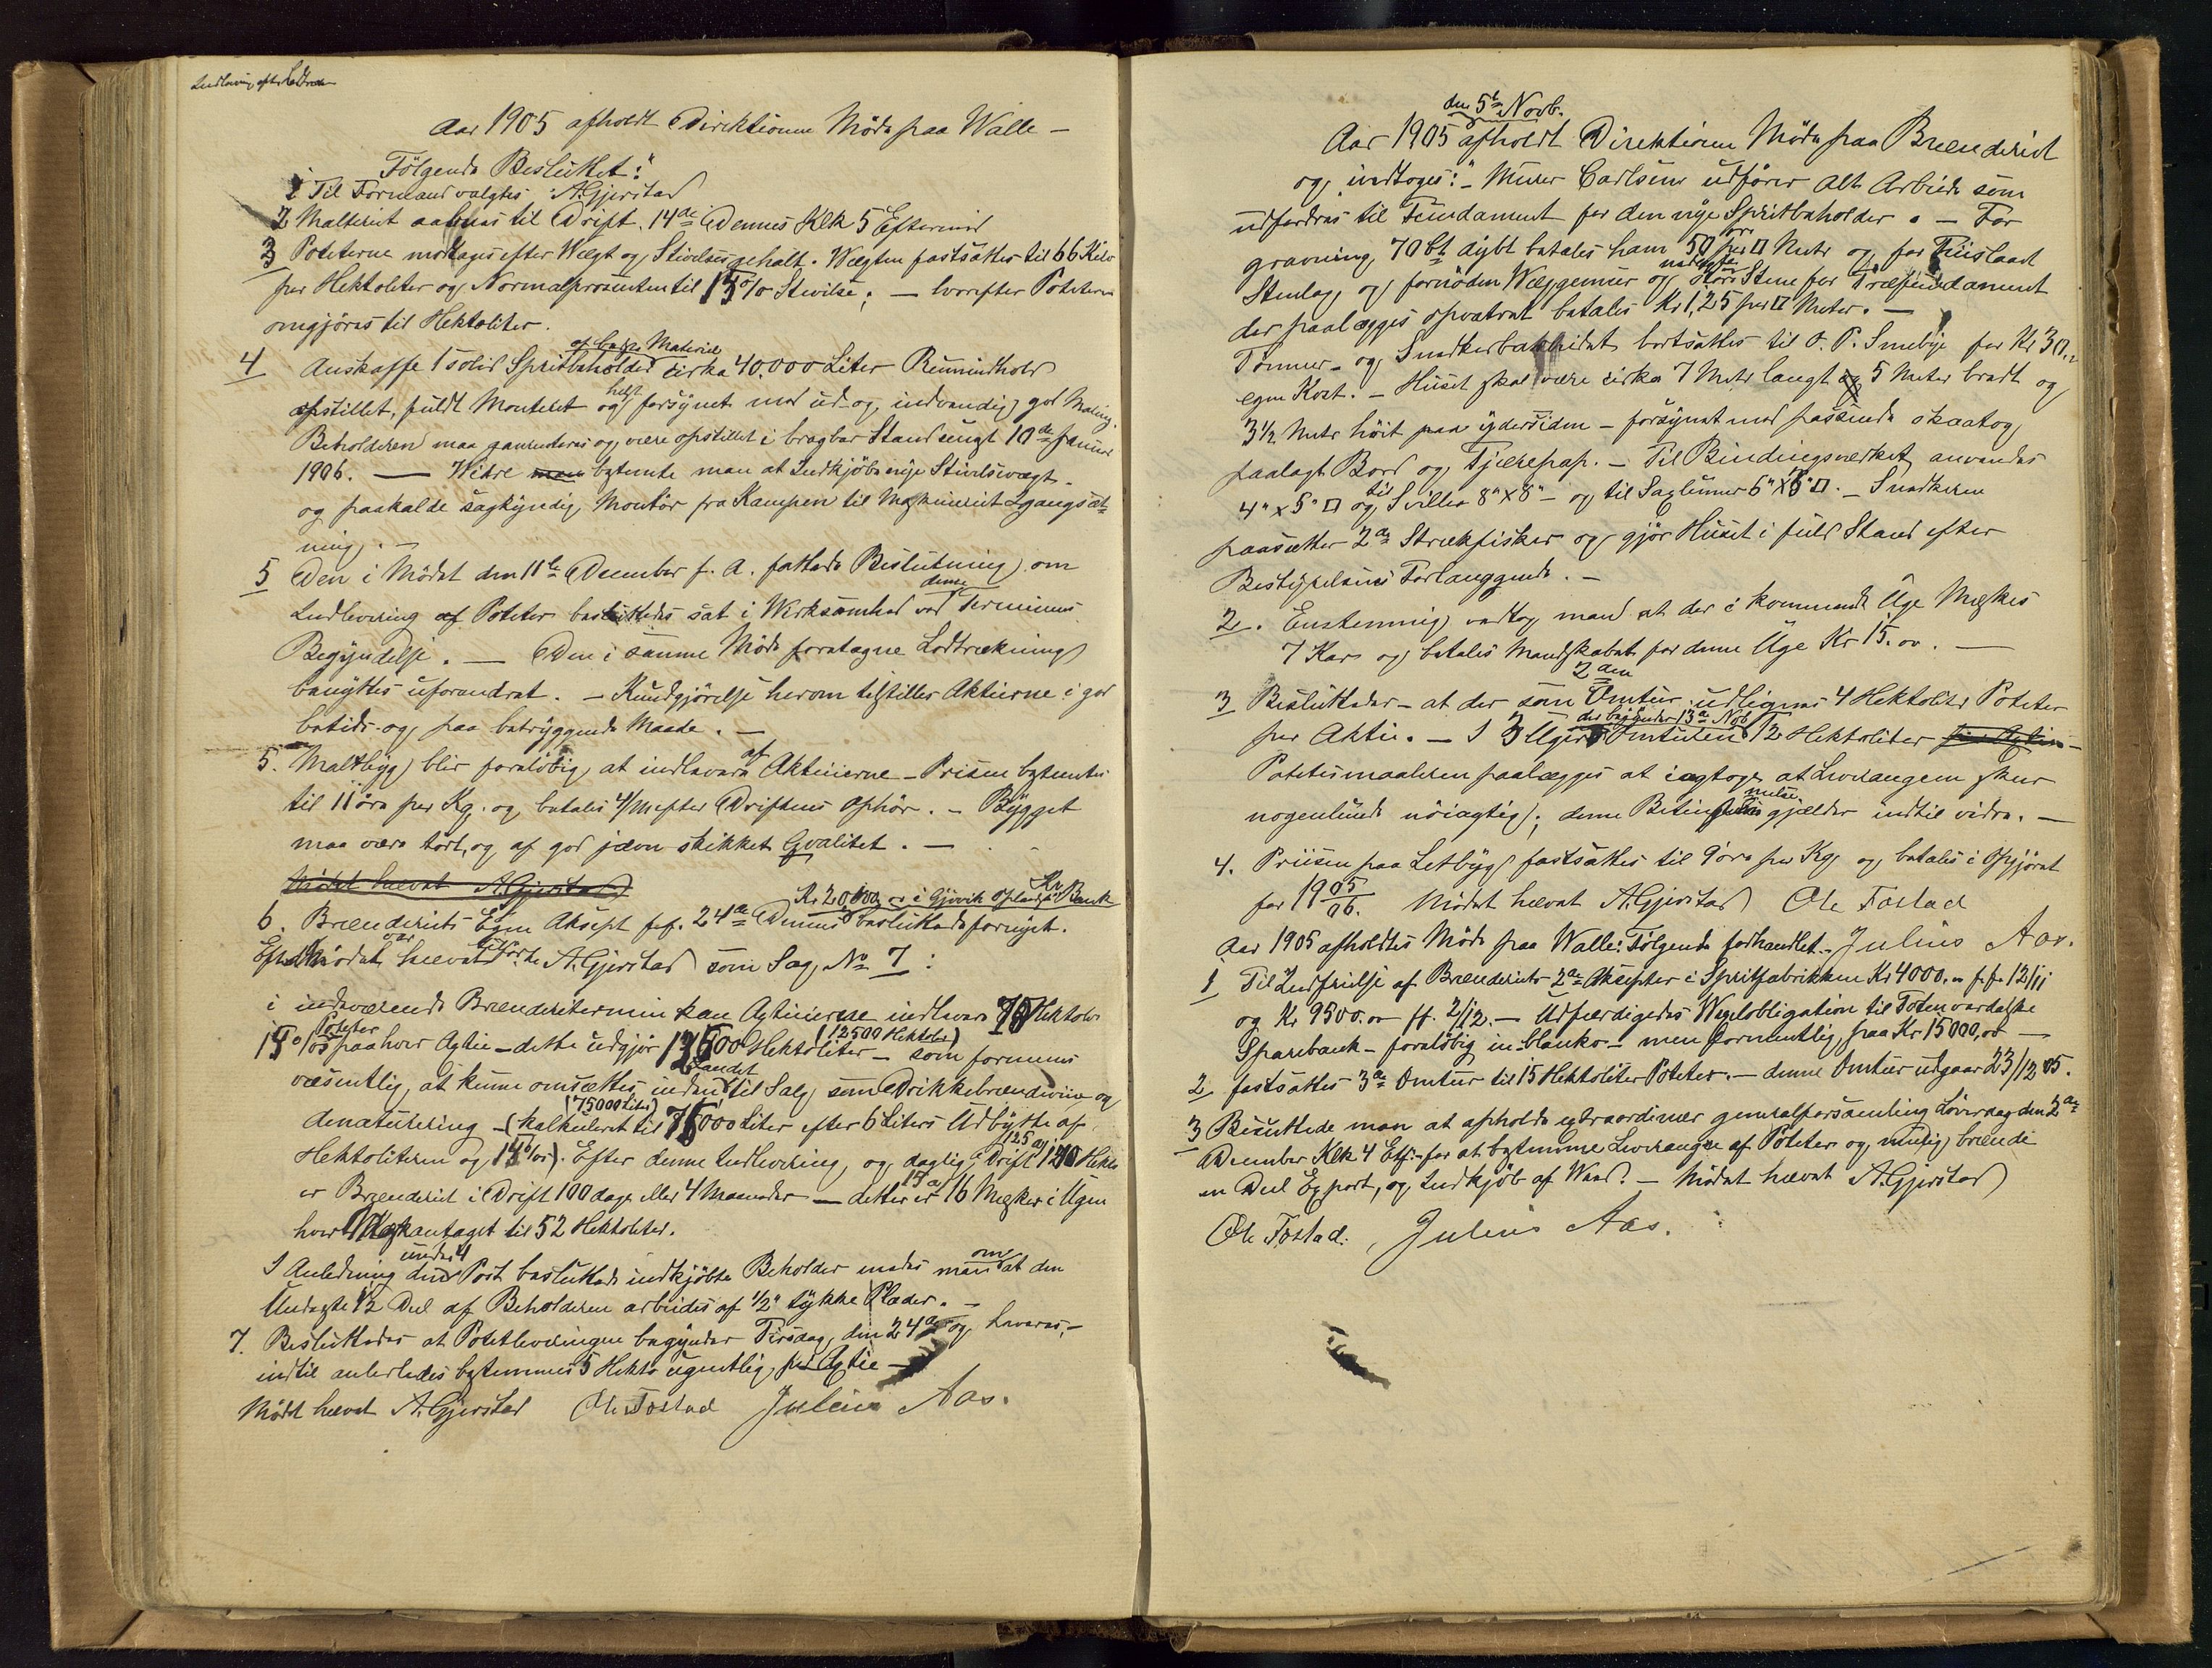 Indlevering efter Lodtræk
Aar 1905 afholdt Direktionen Möde paa Walle —
Fölgende Besluttet:
1 Til Formand valgtes A. Gjerstad
2 Malteriet aabnes til Drift 14de Dennes Klk 5 Eftermid
3 Poteterne modtages efter Vægt og Stivelsesgehalt. Vægten fastsættes til 66 Kilo
per Hektoliter og Normalprosenten til 15% Stivelse; — hvorefter Poteterne
omgjöres til Hektoliter.
4 Anskaffe 1 solid Spritbeholder af bedste Materiel cirka 40.000 Liter Rumindhold
opstillet, fuldt Monteret og helst forsynet med ud- og indvendig god Maling.
Beholderen maa garanteres og være opstillet i brugbar Stand inden 10de Januar
1906. — Videre bestemte man at Indkjöbe nye Stivelsesvægt
og paakalde sagkyndig Montör fra Kampen til Maskineriets Igangsæt-
ning. —
5 Den i Mödet den 11te December f. A. fattede Beslutning om
Indlevering af Poteter besluttedes sat i Virksomhed ved denne Termins
Begyndelse. — Den i samme Möde foretagne Lodtrækning
benyttes uforandret. — Kundgjörelse herom tilstilles Aktierne i god
betids og paa betryggende Maade. —
5. Maltbyg blir forelöbig at indlevere af Aktierne — Prisen bestemtes
til 11 öre per Kg. og betales 4/m efter Driftens Ophör. — Bygget
maa være tört, og af god jævn skikket Qvalitet. —
Mödet hævet A. Gjerstad
Kr 20,000 i Gjövik Oplands Kr Bank
6. Brænderiets Egen Aksept pf. 24de Dennes besluttedes fornyet.
Efter Mödet var hævet A. Gjerstad som Sag No 7:
i indeværende Brænderitermin kan Aktieierne indlevere 75 Hektoliter
15% Poteter paa hver Aktie — dette udgjör 12500 Hektoliter (12500 Hektoliter) — som formenes
væsentlig at kunne omsættes inden landet til Salg som Drikkebrændevin og
denaturering — (kalkuleret til 75000 Liter (75000 Liter) efter 6 Liters Udbytte af
Hektoliteren og 15%). Efter denne Indlevering og daglig Drift 125 a 130 Hekto
er Brænderiet i Drift 100 dage eller 4 Maaneder — dette er 15 a 16 Mæsker i Ugen
hver Mæsk antaget til 52 Hektoliter.
I Anledning den under 4 Post besluttede indkjöbte Beholder enedes man om at den
Nederste 1/2 Del af Beholderen arbeides af 1/2" tykke Plader. —
7. Besluttedes at Potetleveringen begynder Tirsdag den 24de og leveres,—
indtil anderledes bestemmes 5 Hekto ugentlig per Aktie —
Mödet hævet A. Gjerstad Ole Fostad Julius Aas.
Aar 1905 den 5te Novb. afholdt Direktionen Möde paa Brænderiet
og vedtoges: — Murer Carlsen udförer alt Arbeide som
udfordres til Fundament for den nye Spritbeholder. — For
gravning 70 Ct dybt betales ham 50 öre per □ Meter og for Tilslaaet
Stenlag og fornöden Væggemur og nedlagte store Stene for Træfundament
der paalægges opvatret betales Kr 1,25 per □ Meter. —
Tömmer- og Snedkerarbeidet bortsættes til O. P. Smebye for Kr 30,-
egen Kost. — Huset skal være cirka 7 Meter langt 5 Meter bredt og
3 1/2 Meter höit paa ydersiden — forsynet med passende skraatag
paalagt Bord og Tjærepap. — Til Bindingsverket anvendes
4" x 5" □ og til Sviller 8" x 8" — og til Saxlinner 6" x 6" □. — Snedkeren
paasætter 2de Strækfisker og gjör Huset i fuld Stand efter
Bestyrelsens Forlangende. —
2. Enstemmig vedtog man at der i kommende Uge Mæskes
7 Kar og betales Mandskabet for denne Uge Kr 15.00. —
3 Besluttedes — at der som 2den Omtur udlignes 4 Hektoliter Poteter
per Aktie. — I 3 Ugers Omturen der begynder 13de Nob 12 Hektoliter per Aktie —
Potetesmaaleren paalægges at iagttage at Leverangen sker
nogenlunde nöiagtig; denne Bestemmelse gjælder indtil videre. —
4. Priisen paa Letbyg fastsættes til 9 öre per Kg og betales i Opgjöret
for 1905/06. Mödet hævet A. Gjerstad Ole Fostad
Julius Aas.
Aar 1905 afholdtes Möde paa Walle: Fölgende forhandlet —
1 Til Indfrielse af Brænderiets 2de Aksepter i Spritfabrikken Kr 4000.00 p.f. 12/11
og Kr 9500.00 pf. 2/12. — Udfærdigedes Vexelobligation til Toten vardalske
Sparebank — forelöbig in-blanko — men formentlig paa Kr 15000,00 —
2 fastsættes 3de Omtur til 15 Hektoliter Poteter. — denne Omtur udgaar 23/12 05.
3 Besluttede man at afholde extraordinær generalforsamling Löverdag den 2de
December Klk 4 Etf. for at bestemme Leverangen af Poteter og mulig brænde
en Deel Export, og Indkjöb af Ved? — Mödet hævet A. Gjerstad
Ole Fostad. Julius Aas.